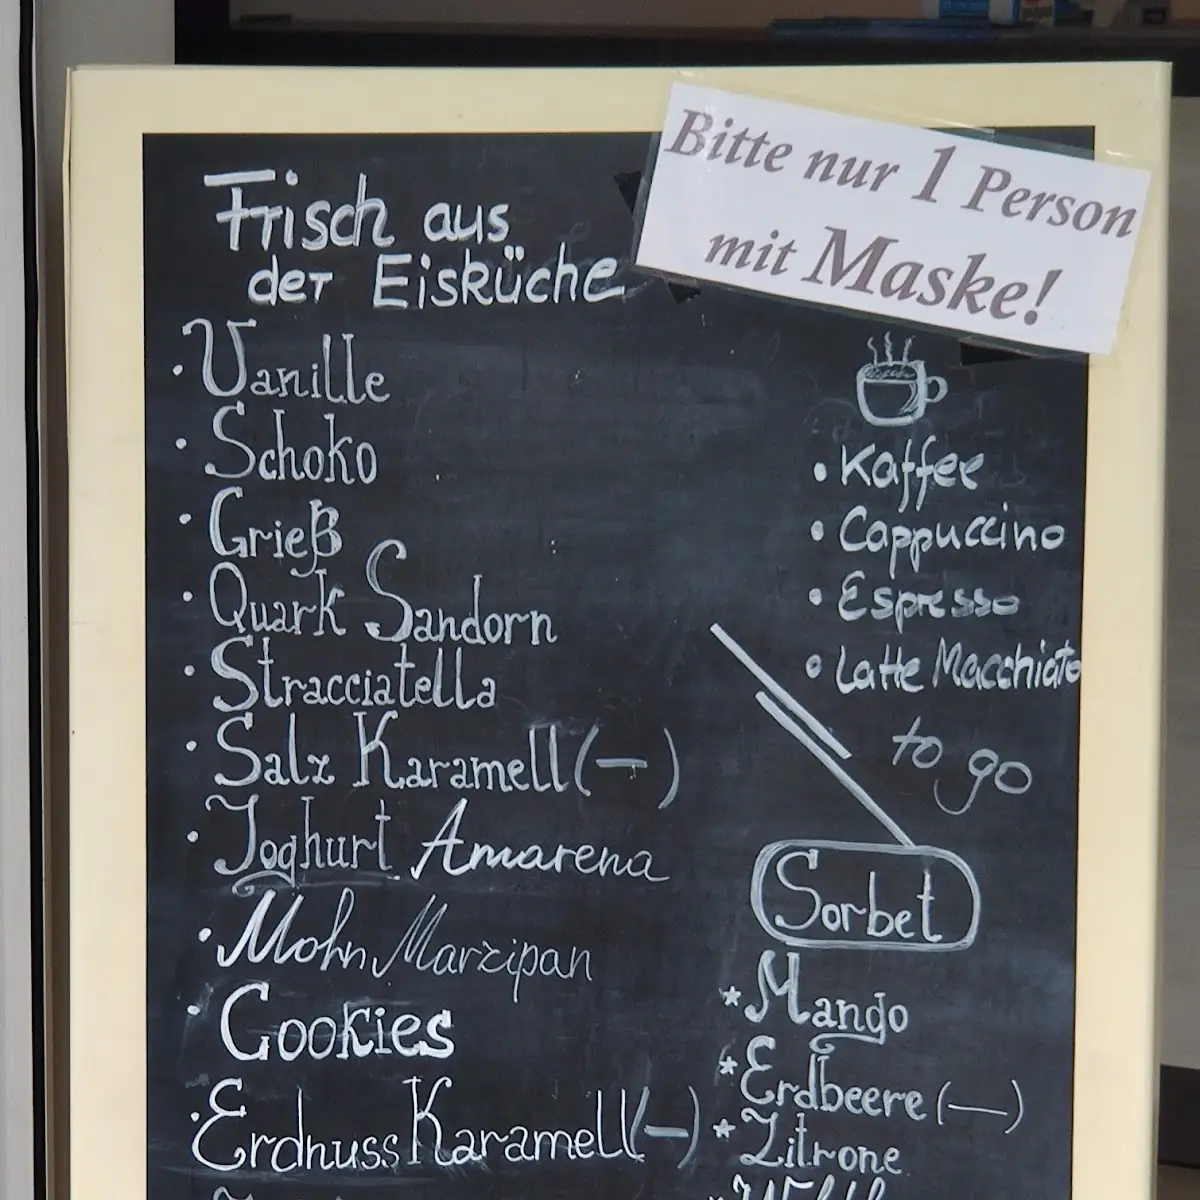 Bitte nur 1 Person
mit Maske!
Frisch aus
der Eisküche
• Vanille
• Schoko
• Grieß
• Quark Sandorn
• Stracciatella
• Salz Karamell (—)
• Joghurt Amarena
• Mohn Marzipan
• Cookies
• Erdnuss Karamell (—)
• Kaffee
• Cappuccino
• Espresso
• Latte Macchiato
to go
Sorbet
* Mango
* Erdbeere (—)
* Zitrone